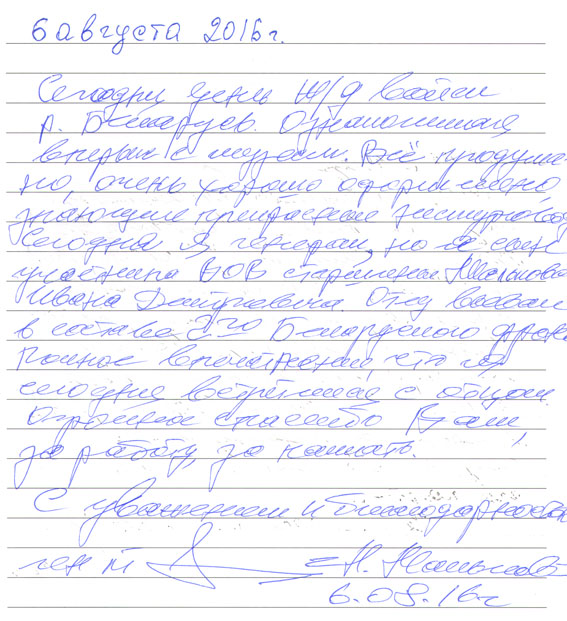 6 августа 2016 г.
Сегодня день Ж/Д войск
р. Беларусь. Ознакомился
впервые с музеем. Всё продума-
но, очень хорошо оформлено,
знающие прекрасные
Сегодня я генерал, но я сын
участника ВОВ старшины
Ивана Дмитриевича. Отец воевал
в составе 2го Белорусского
Полное впечатление, что я
сегодня встретился с отцом
Огромное спасибо Вам,
за работу, за память.
С уважением и благодарностью
ген м
6.08.16 г